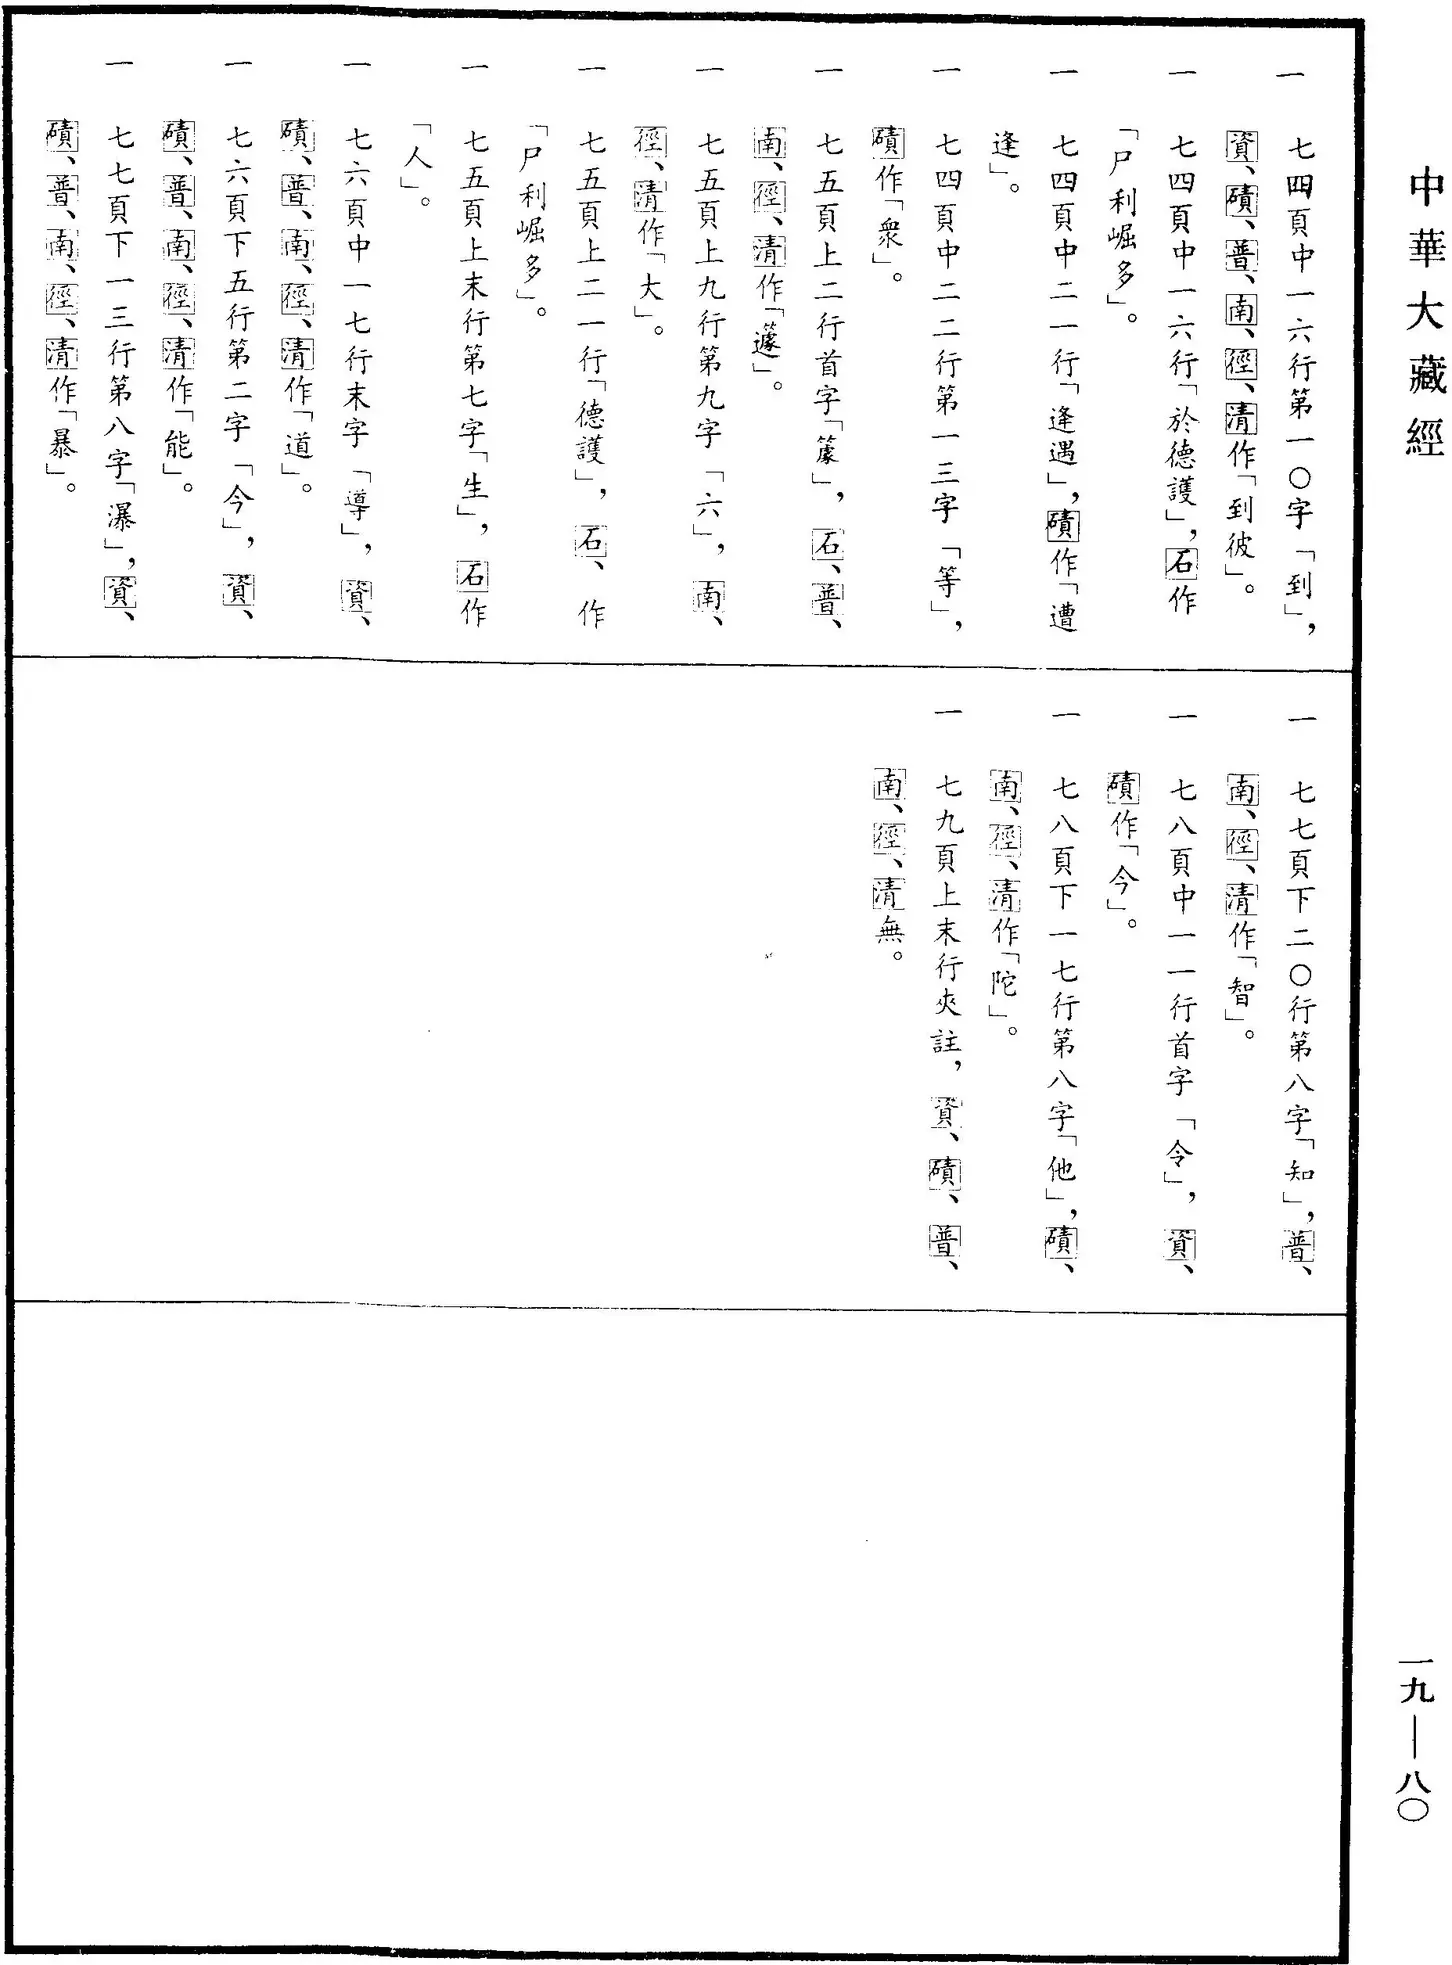 中華大藏經
一　七四頁中一六行第一〇字「到」，
資、磧、普、南、徑、清作「到彼」。
一　七四頁中一六行「於德護」，石作
「尸利崛多」。
一　七四頁中二一行「逢遇」，磧作「遭
逢」。
一　七四頁中二二行第一三字「等」，
磧作「衆」。
一　七五頁上二行首字「籧」，石、普、
南、徑、清作「蘧」。
一　七五頁上九行第九字「六」，南、
徑、清作「大」。
一　七五頁上二一行「德護」，石、作
「尸利崛多」。
一　七五頁上末行第七字「生」，石作
「人」。
一　七六頁中一七行末字「導」，資、
磧、普、南、徑、清作「道」。
一　七六頁下五行第二字「今」，資、
磧、普、南、徑、清作「能」。
一　七七頁下一三行第八字「瀑」，資、
磧、普、南、徑、清作「暴」。
一　七七頁下二〇行第八字「知」，普、
南、徑、清作「智」。
一　七八頁中一一行首字「令」，資、
磧作「今」。
一　七八頁下一七行第八字「他」，磧、
南、徑、清作「陀」。
一　七九頁上末行夾註，資、磧、普、
南、徑、清無。
一九—八〇